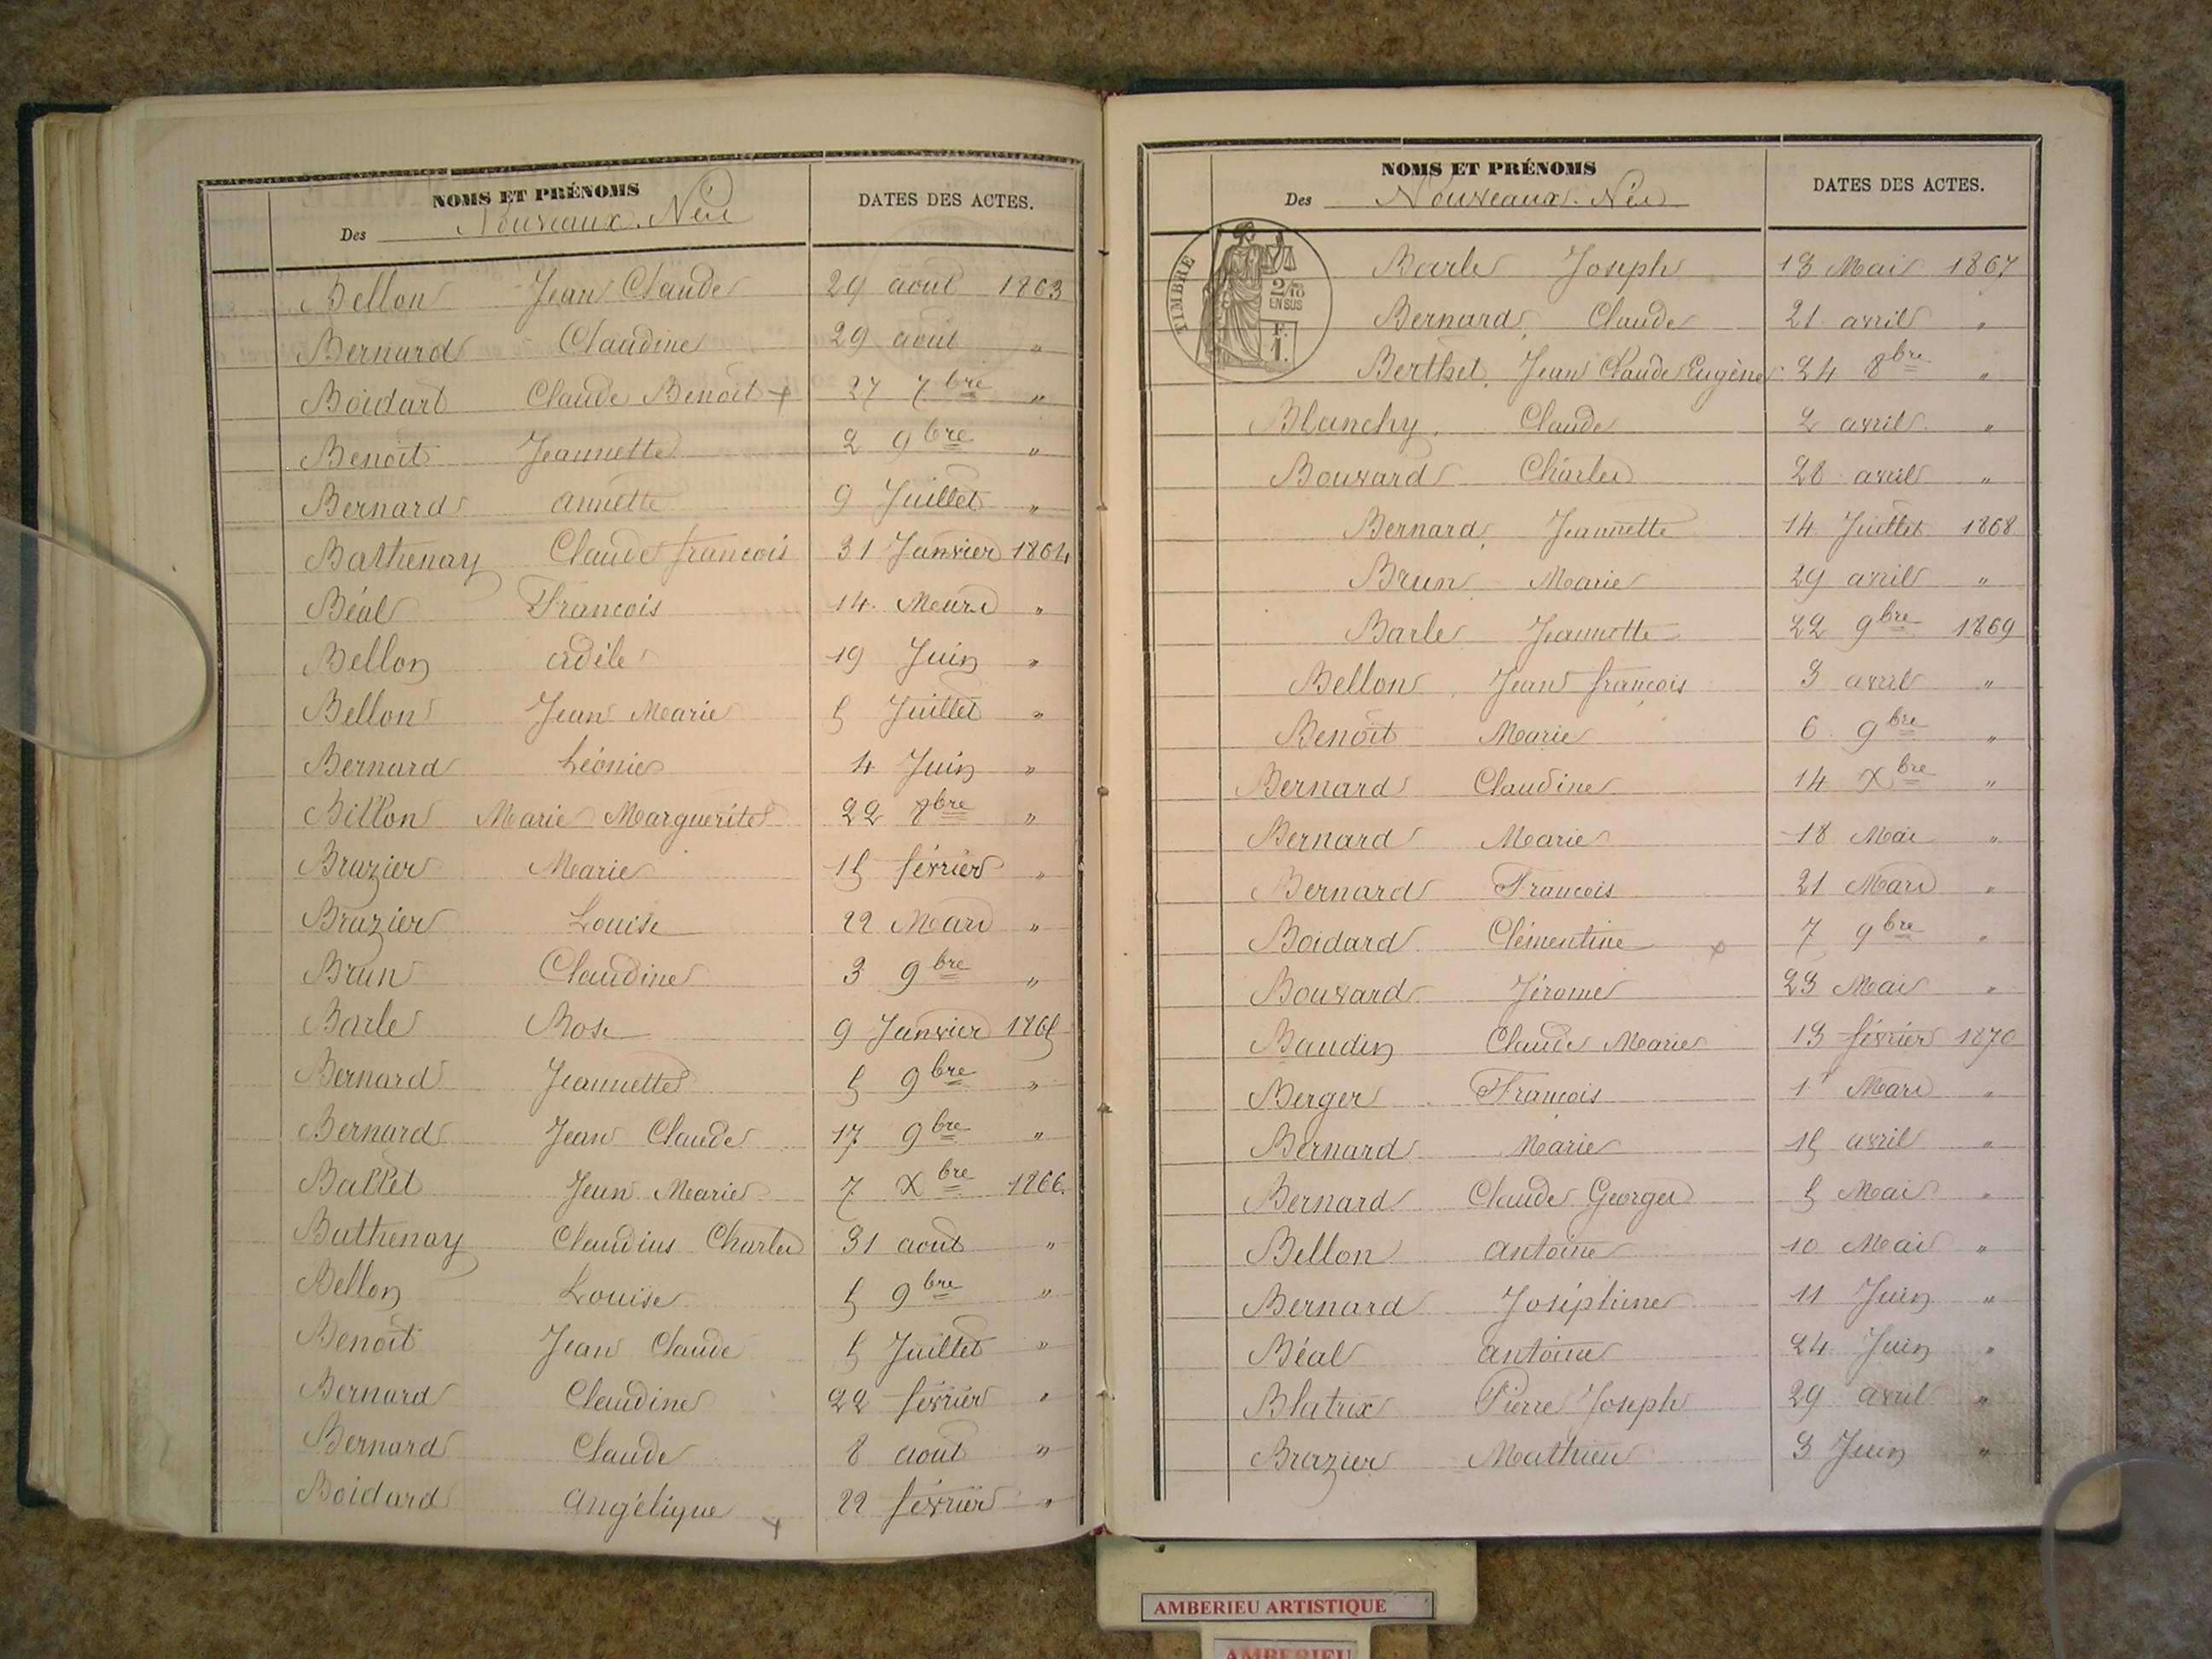 NOMS ET PRÉNOMS
Des Nouveaux Nés
DATES DES ACTES.
Bellon Jean Claude 29 aout 1863
Bernard Claudine 29 aout "
Boidart Claude Benoit + 27 7bre "
Benoit Jeannette 2 9bre "
Bernard annette 9 Juillet "
Bathenay Claude francois 31 Janvier 1864
Béal Francois 14 Mars "
Bellon adèle 19 Juin "
Bellon Jean Marie 5 Juillet "
Bernard Léonie 4 Juin "
Billon Marie Marguerite 22 8bre "
Brazier Marie 15 février "
Brazier Louise 22 Mars "
Brun Claudine 3 9bre "
Barle Rose 9 Janvier 1865
Bernard Jeannette 5 9bre "
Bernard Jean Claude 17 9bre "
Ballet Jean Marie 7 Xbre 1866
Bathenay Claudius Charles 31 aout "
Bellon Louise 5 9bre "
Benoit Jean Claude 5 Juillet "
Bernard Claudine 22 février "
Bernard Claude 8 aout "
Boidard angélique + 22 février "
NOMS ET PRÉNOMS
Des Nouveaux Nés
DATES DES ACTES.
TIMBRE
2/10
EN SUS
F.
1.
Barle Joseph 13 Mai 1867
Bernard Claude 21 avril "
Berthet Jean Claude Eugène 24 8bre "
Blanchy Claude 2 avril "
Bouvard Charles 28 avril "
Bernard Jeannette 14 Juillet 1868
Brun Marie 29 avril "
Barle Jeannette 22 9bre 1869
Bellon Jean françois 3 avril "
Benoit Marie 6 9bre "
Bernard Claudine 14 Xbre "
Bernard Marie 18 Mai "
Bernard Francois 21 Mars "
Boidard Clémentine + 7 9bre "
Bouvard Jérome 23 Mai "
Baudin Claude Marie 13 février 1870
Berger Francois 1r Mars "
Bernard Marie 15 avril "
Bernard Claude Georges 5 Mai "
Bellon antoine 10 Mai "
Bernard Joséphine 11 Juin "
Béal antoine 24 Juin "
Blatrix Pierre Joseph 29 avril "
Brazier Mathieu 3 Juin "
AMBERIEU ARTISTIQUE
AMBERIEU